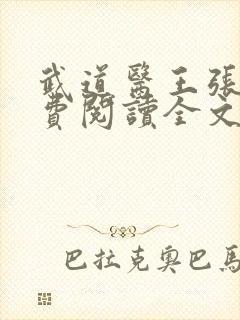 武道醫王張
費閱讀全文
巴拉克奧巴馬